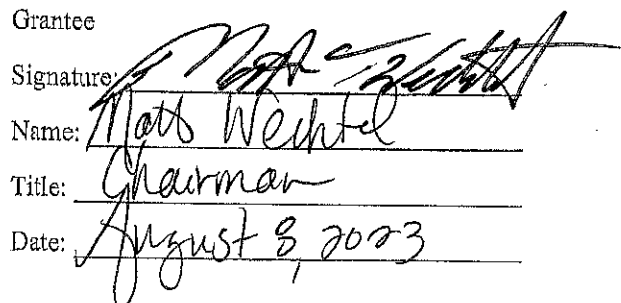 Grantee
Signature: Matt Wechtel
Name: Matt Wechtel
Title: Chairman
Date: August 8, 2023